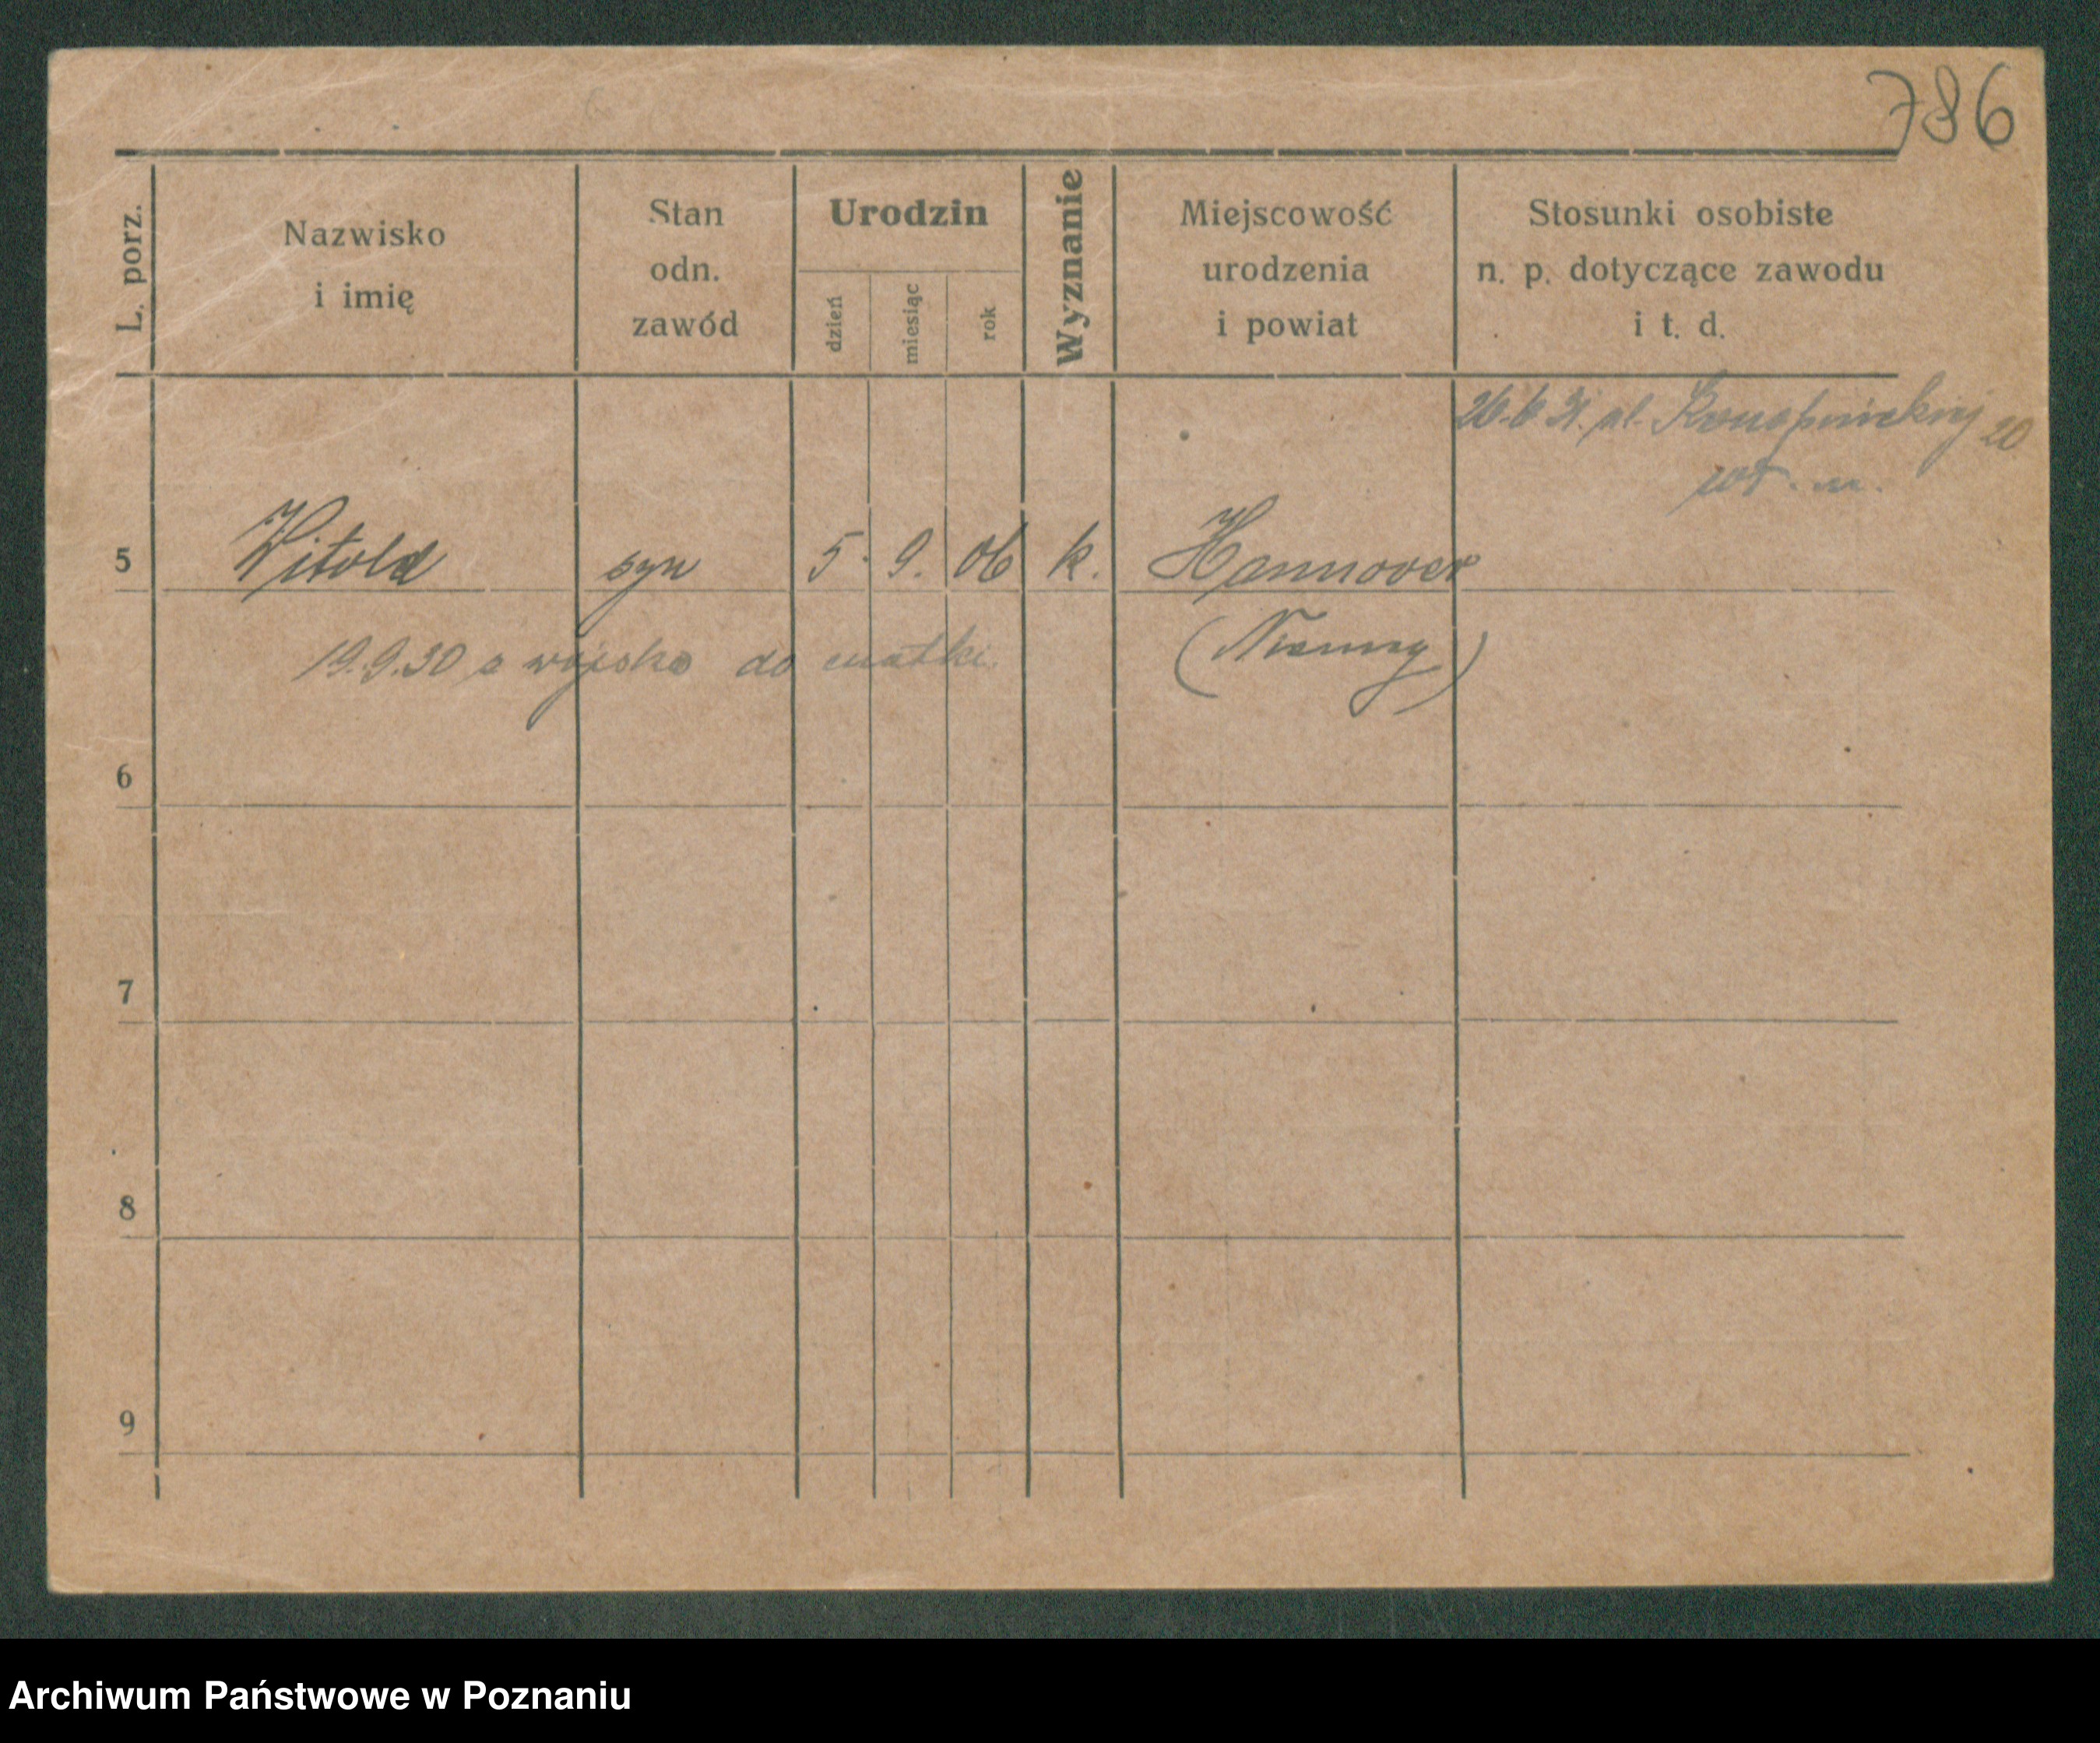 786
L. porz.
Nazwisko
i imię
Stan
odn.
zawód
Urodzin
dzień
miesiąc
rok
Wyznanie
Miejscowość
urodzenia
i powiat
Stosunki osobiste
n. p. dotyczące zawodu
i t. d.
26.6.31. ul. Konopnickiej 20
5 Witold syn 5. 9. 06 k. Hannover
(Niemcy)
19.9.30 z wojska do matki
6
7
8
9
Archiwum Państwowe w Poznaniu